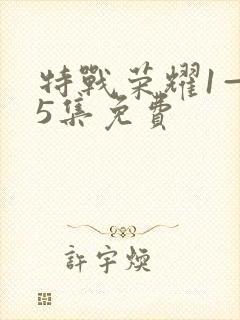 特戰荣耀1一
5集免費
許宇煥